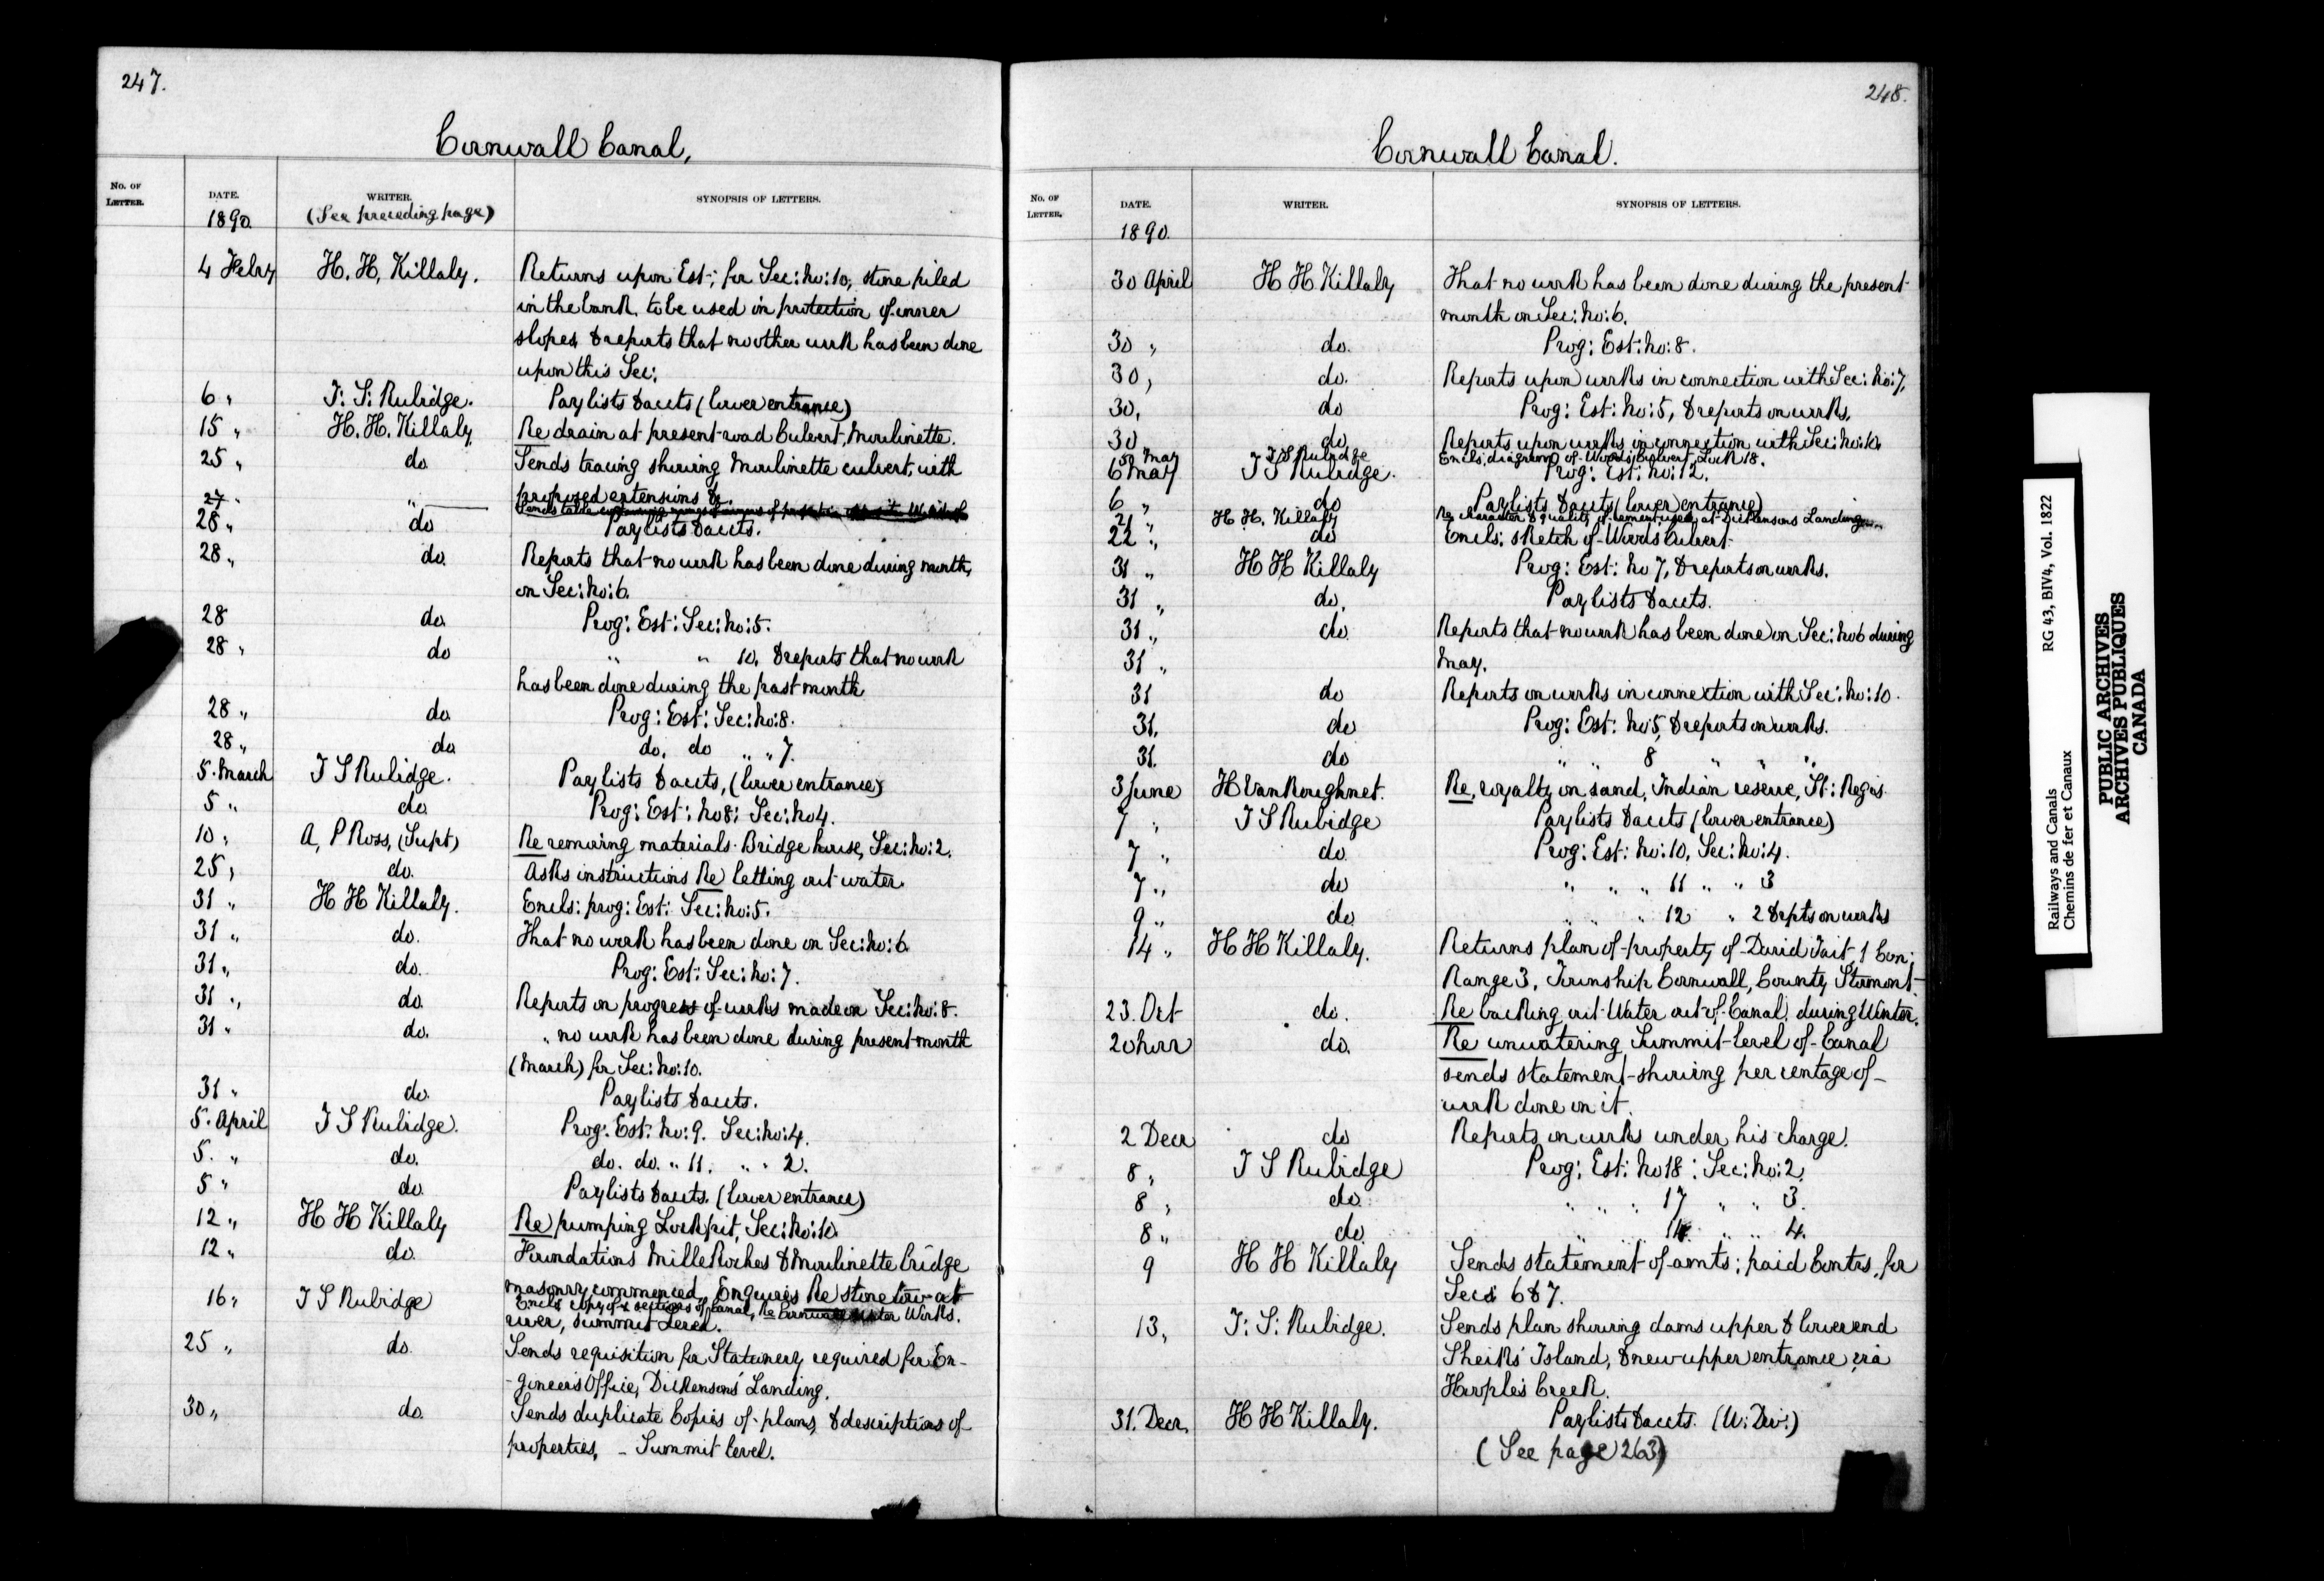 247.
Cornwall Canal,
No. OF LETTER.
DATE.
WRITER.
SYNOPSIS OF LETTERS.
1890.
(See preceding page)
4 Febry H. H. Killaly. Returns upon Est: for Sec: No: 10, stone piled
in the bank, to be used in protection of inner
slopes & reports that no other work has been done
upon this Sec:
6 " T: S: Rubidge. Paylists & accts (lower entrance)
15 " H. H. Killaly Re drain at present road Culvert, Moulinette.
25 " do. Sends tracing showing Moulinette culvert, with
proposed extensions &c.
27 " " Sends table
28 " do Paylists & accts.
28 " do. Reports that no work has been done during month,
on Sec: No: 6.
28 do. Prog: Est: Sec: No: 5.
28 " do " " 10. & reports that no work
has been done during the past month
28 " do. Prog: Est: Sec: No: 8.
28 " do do. do " " 7.
5. March T S Rubidge. Paylists & accts, (lower entrance)
5 " do. Prog: Est: No 8: Sec: No 4.
10 " A, P Ross, (Supt) Re removing materials Bridge house, Sec: No: 2.
25 " do. Asks instructions Re letting out water.
31 " H H Killaly. Encls: prog: Est: Sec: No: 5.
31 " do. That no work has been done on Sec: No: 6.
31 " do. Prog: Est: Sec: No: 7.
31 " do. Reports on progress of works made on Sec: No: 8.
31 " do. " no work has been done during present month
(March) for Sec: No: 10.
31 " do. Paylists & accts.
5. April T S Rubidge. Prog: Est: No: 9. Sec: No: 4.
5. " do. do. do. " 11. " " 2.
5 " do. Paylists & accts. (lower entrance)
12 " H H Killaly Re pumping Lock pit, Sec: No: 10.
12 " do. Foundations Mille Roches & Moulinette bridge
masonry commenced, Enquires Re stone low at
16 " T S Rubidge Encls copy of x sections of Canal, Re Cornwall Water Works.
river, Summit Level.
25 " do. Sends requisition for Stationery required for En-
-gineers Office, Dickensons' Landing.
30 " do. Sends duplicate Copies of plans, & descriptions of
properties, - Summit level.
248.
Cornwall Canal.
No. OF LETTER.
DATE.
WRITER.
SYNOPSIS OF LETTERS.
1890.
30 April H H Killaly That no work has been done during the present
month on Sec: No: 6.
30 " do. Prog: Est: No: 8.
30 " do. Reports upon works in connection with Sec: No: 7.
30. do Prog: Est: No: 5, & reports on works.
30 do. Reports upon works in connection with Sec: No: 10.
May T S Rubidge Encls: diagram of Woods Culvert, Lock 18.
6 May T S Rubidge. Prog: Est: No: 12.
6 " do Paylists & accts (lower entrance)
21 " H. H. Killaly Re character & quality of cement used at Dickensons Landing
22 " do Encls: sketch of Woods Culvert.
31 " H H Killaly Prog: Est: No 7, & reports on works.
31 " do. Paylists & accts.
31 " do. Reports that no work has been done on Sec: No 6 during
31 " May.
31 do Reports on works in connection with Sec: No: 10.
31. do Prog: Est: No 5, & reports on works.
31. do " " 8 " " "
3 June H VanKoughnet. Re, royalty on sand, Indian reserve, St: Regis.
7 " T S Rubidge Paylists & accts (lower entrance)
7 " do. Prog: Est: No: 10, Sec: No: 4.
7 " do " " " 11 " " 3
9 " do " " " 12 " 2 & rpts on works
14 " H H Killaly. Returns plan of property of David Tait, 1 Con:
Range 3, Township Cornwall, County Stormont
23. Oct do. Re backing out Water out of Canal, during Winter.
20 Novr do. Re unwatering Summit level of Canal
sends statement showing per centage of
work done on it.
2 Decr do Reports on works under his charge.
8 " T S Rubidge Prog: Est: No 18: Sec: No: 2.
8 " do. " " " 17 " " 3.
8 " do. " " " " " 4.
9 H H Killaly Sends statement of amts: paid Contrs, for
Secs 6 & 7.
13 " T: S: Rubidge. Sends plan showing dams upper & lower end
Sheiks' Island, & new upper entrance via
Hoople's Creek.
31. Decr. H H Killaly. Paylists & accts. (W: Div:)
(See page 263)
Railways and Canals
Chemins de fer et Canaux
RG 43, BIV4, Vol. 1822
PUBLIC ARCHIVES
ARCHIVES PUBLIQUES
CANADA